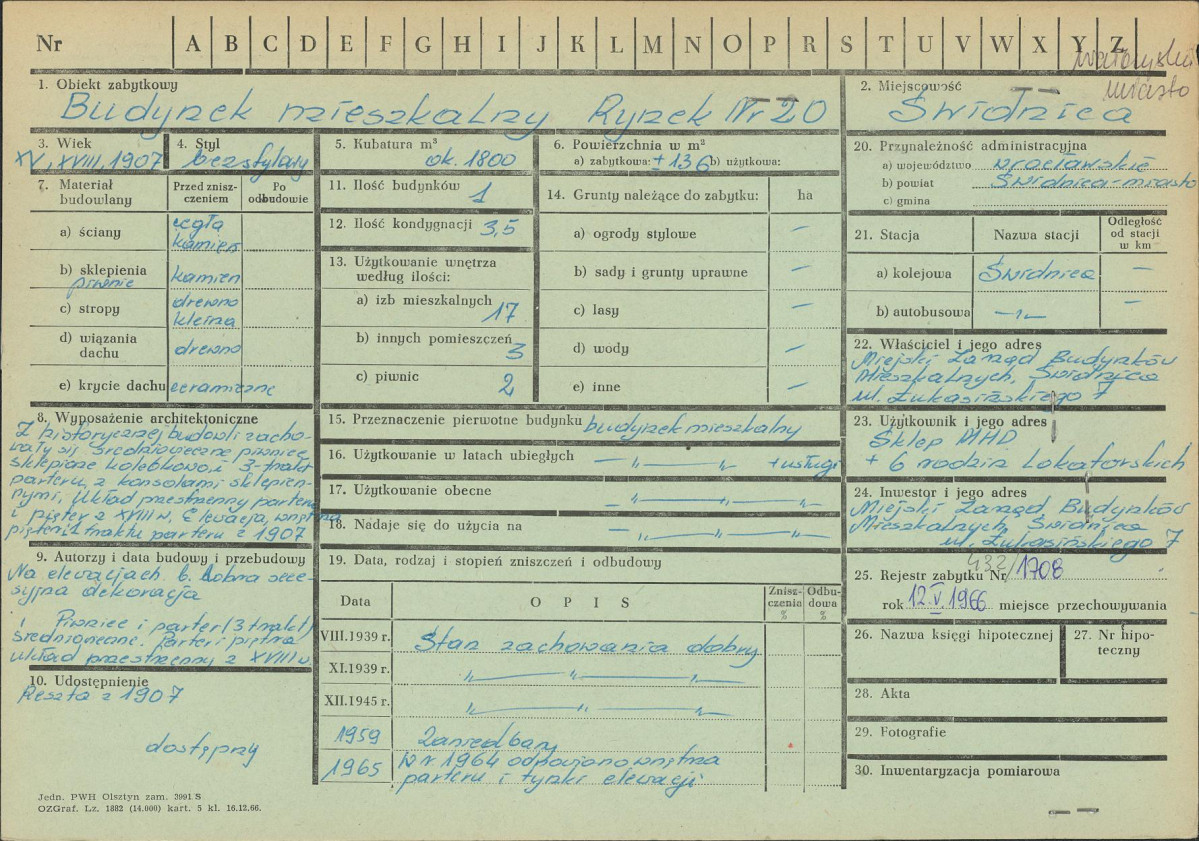 Nr A B C D E F G H I J K L M N O P R S T U V W X Y Z
miasto
1. Obiekt zabytkowy
Budynek mieszkalny Rynek Nr 20
2. Miejscowość
Świdnica
3. Wiek
XV, XVIII, 1907
4. Styl
bezstylowy
5. Kubatura m³
ok. 1800
6. Powierzchnia w m²
a) zabytkowa: ± 136 b) użytkowa:
20. Przynależność administracyjna
a) województwo wrocławskie
b) powiat Świdnica-miasto
c) gmina
7. Materiał budowlany
Przed zniszczeniem
Po odbudowie
a) ściany cegła kamień
b) sklepienia piwnic kamień
c) stropy drewno kleina
d) wiązania dachu drewno
e) krycie dachu ceramiczne
11. Ilość budynków 1
12. Ilość kondygnacji 3,5
13. Użytkowanie wnętrza według ilości:
a) izb mieszkalnych 17
b) innych pomieszczeń 3
c) piwnic 2
14. Grunty należące do zabytku: ha
a) ogrody stylowe –
b) sady i grunty uprawne –
c) lasy –
d) wody –
e) inne –
21. Stacja
Nazwa stacji
Odległość od stacji w km
a) kolejowa Świdnica –
b) autobusowa –„– –
22. Właściciel i jego adres
Miejski Zarząd Budynków
Mieszkalnych, Świdnica
ul. Łukasińskiego 7
8. Wyposażenie architektoniczne
Z historycznej budowli zacho-
wały się średniowieczne piwnice
sklepione kolebkowo i 3-trakt
parteru, z konsolami sklepien-
nymi, układ przestrzenny parteru
i pięter z XVIII w, Elewacja, wnętrza
pięter i 1 traktu parteru z 1907
15. Przeznaczenie pierwotne budynku budynek mieszkalny
16. Użytkowanie w latach ubiegłych –„– + usługi
17. Użytkowanie obecne –„–„–
18. Nadaje się do użycia na –„–„–
23. Użytkownik i jego adres
Sklep MHD
+ 6 rodzin lokatorskich
24. Inwestor i jego adres
Miejski Zarząd Budynków
Mieszkalnych, Świdnica
ul. Łukasińskiego 7
9. Autorzy i data budowy i przebudowy
Na elewacjach b. dobra sece-
syjna dekoracja
Piwnice i parter (3 trakt)
średniowieczne. Parter i piętra
układ przestrzenny z XVIII w
10. Udostępnienie
Reszta z 1907
dostępny
19. Data, rodzaj i stopień zniszczeń i odbudowy
Data
O P I S
Zniszczenia %
Odbudowa %
VIII.1939 r. Stan zachowania dobry
XI.1939 r. „–„–„
XII.1945 r. „–„–„
1959 Zaniedbany
1965 W r 1964 odnowiono wnętrza
parteru i tynki elewacji
25. Rejestr zabytku Nr 432/1708
rok 12.V.1966 miejsce przechowywania
26. Nazwa księgi hipotecznej
27. Nr hipoteczny
28. Akta
29. Fotografie
30. Inwentaryzacja pomiarowa
Jedn. PWH Olsztyn zam. 3991/S
OZGraf. Lz. 1882 (14.000) kart. 5 kl. 16.12.66.